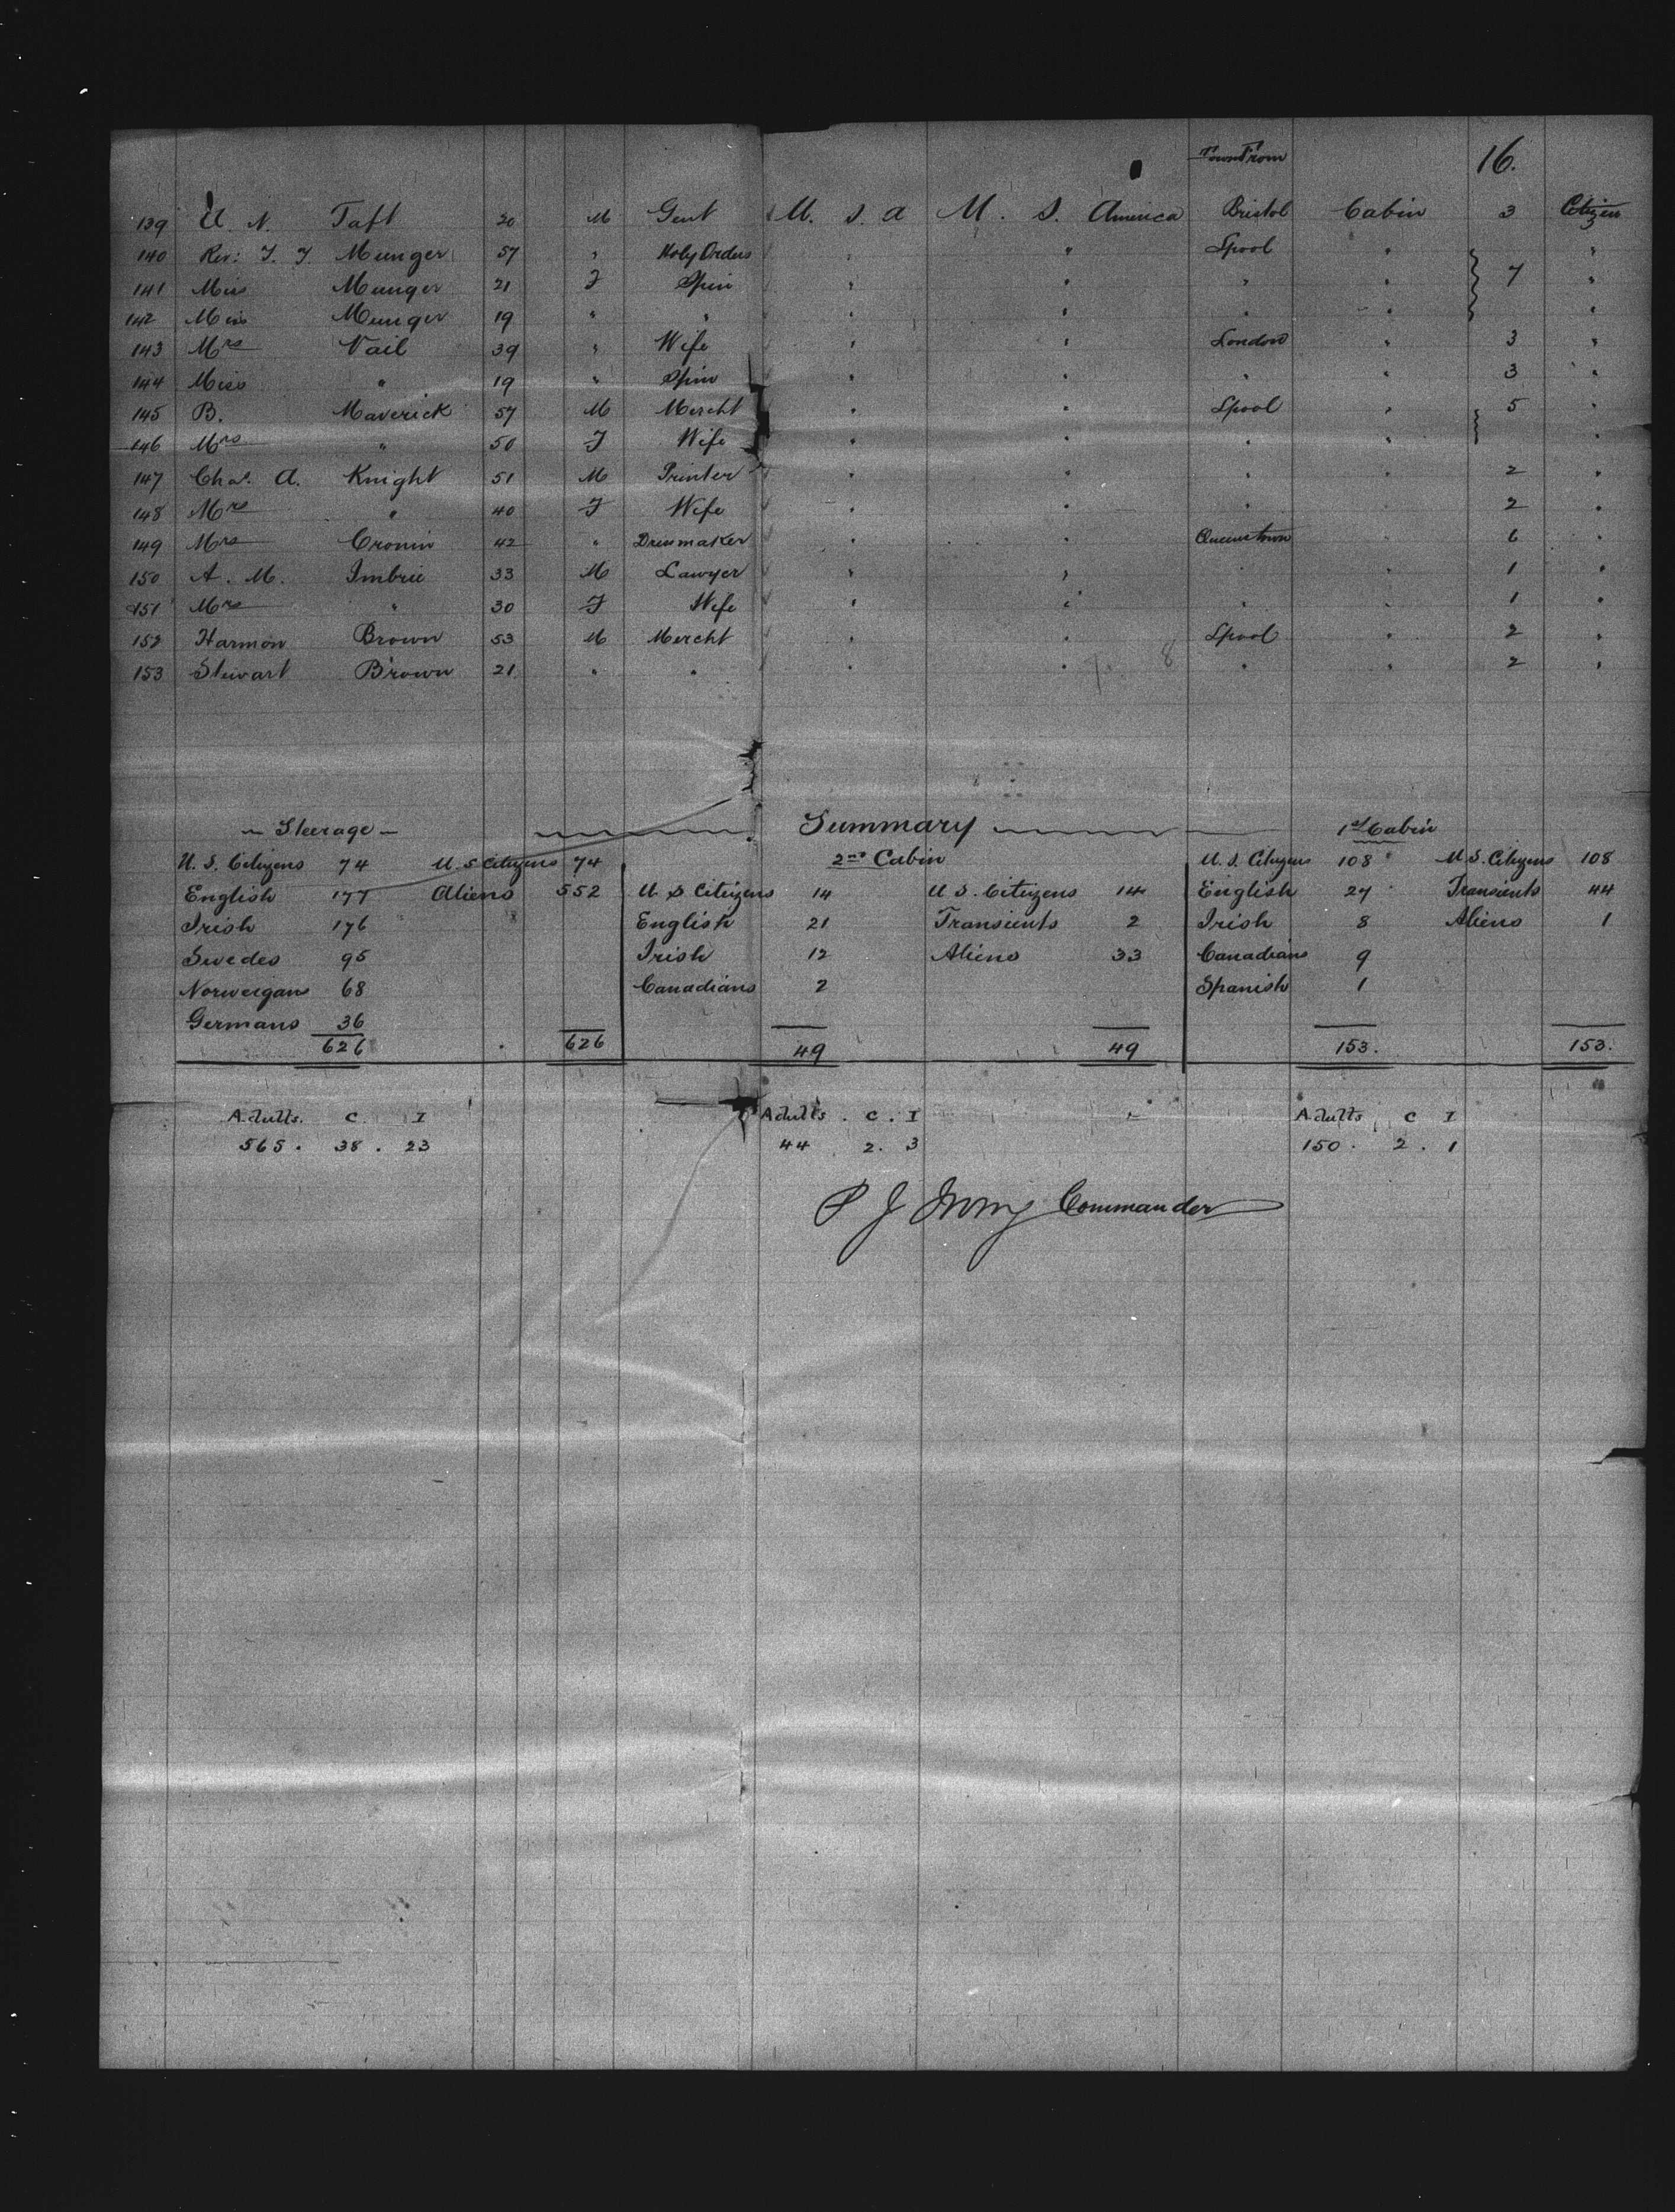 Town From 16.
139 U. N. Taft 20 M Gent U. S. A U. S. America Bristol Cabin 3 Citizen
140 Rev: T. T. Munger 57 " Holy Orders " " Lpool " "
141 Miss Munger 21 F Spin " " " " 7 "
142 Miss Munger 19 " " " " " " "
143 Mrs Vail 39 " Wife " " London " 3 "
144 Miss " 19 " Spin " " " " 3 "
145 B. Maverick 57 M Mercht " " Lpool " 5 "
146 Mrs " 50 F Wife " " " " "
147 Chas. A. Knight 51 M Printer " " " " 2 "
148 Mrs " 40 F Wife " " " " 2 "
149 Mrs Cronin 42 " Dressmaker " " Queenstown " 6 "
150 A. M. Imbrie 33 M Lawyer " " " " 1 "
151 Mrs " 30 F Wife " " " " 1 "
152 Harmon Brown 53 M Mercht " " Lpool " 2 "
153 Stewart Brown 21 " " " " 8 " " 2 "
Steerage Summary 1st Cabin
U. S. Citizens 74 U. S Citizens 74 2nd Cabin U. S. Citizens 108 U. S. Citizens 108
English 177 Aliens 552 U. S Citizens 14 U S. Citizens 14 English 27 Transients 44
Irish 176 English 21 Transients 2 Irish 8 Aliens 1
Swedes 95 Irish 12 Aliens 33 Canadians 9
Norweigans 68 Canadians 2 Spanish 1
Germans 36
626 626 49 49 153. 153.
Adults. C. I Adults. C. I Adults C I
565. 38. 23 44 2. 3 150. 2. 1
P J Irving Commander